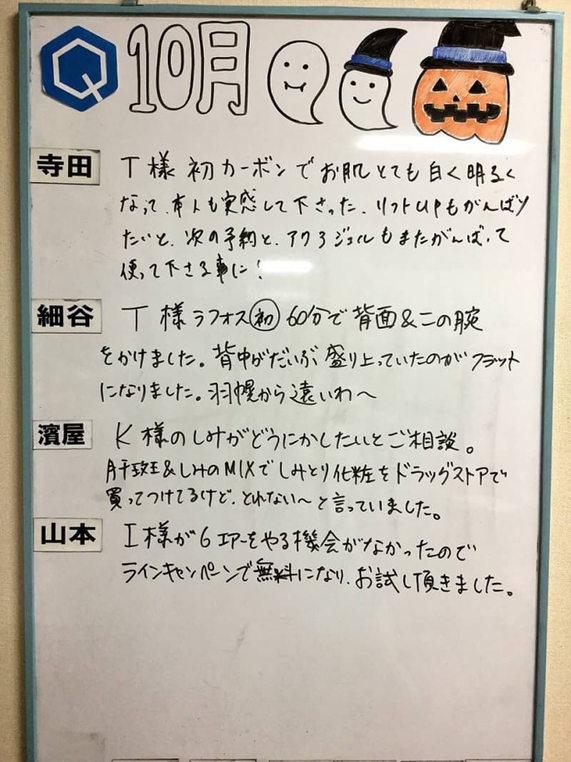 Q 10月
寺田 T様 初カーボンでお肌とても白く明るく
なって、本人も実感して下さった。リフトUPもがんばり
たいと、次の予約と、アクアジェルもまたがんばって
使って下さる事に!
細谷 T様 ラフォス 初 60分で背面&二の腕
をかけました。背中がだいぶ盛り上っていたのがフラット
になりました。羽幌から遠いわ〜
濱屋 K様のしみがどうにかしたいとご相談。
肝斑&しみのMIXでしみとり化粧をドラッグストアで
買ってつけてるけど、とれない〜と言っていました。
山本 I様が6エアーをやる機会がなかったので
ラインキャンペーンで無料になり、お試し頂きました。